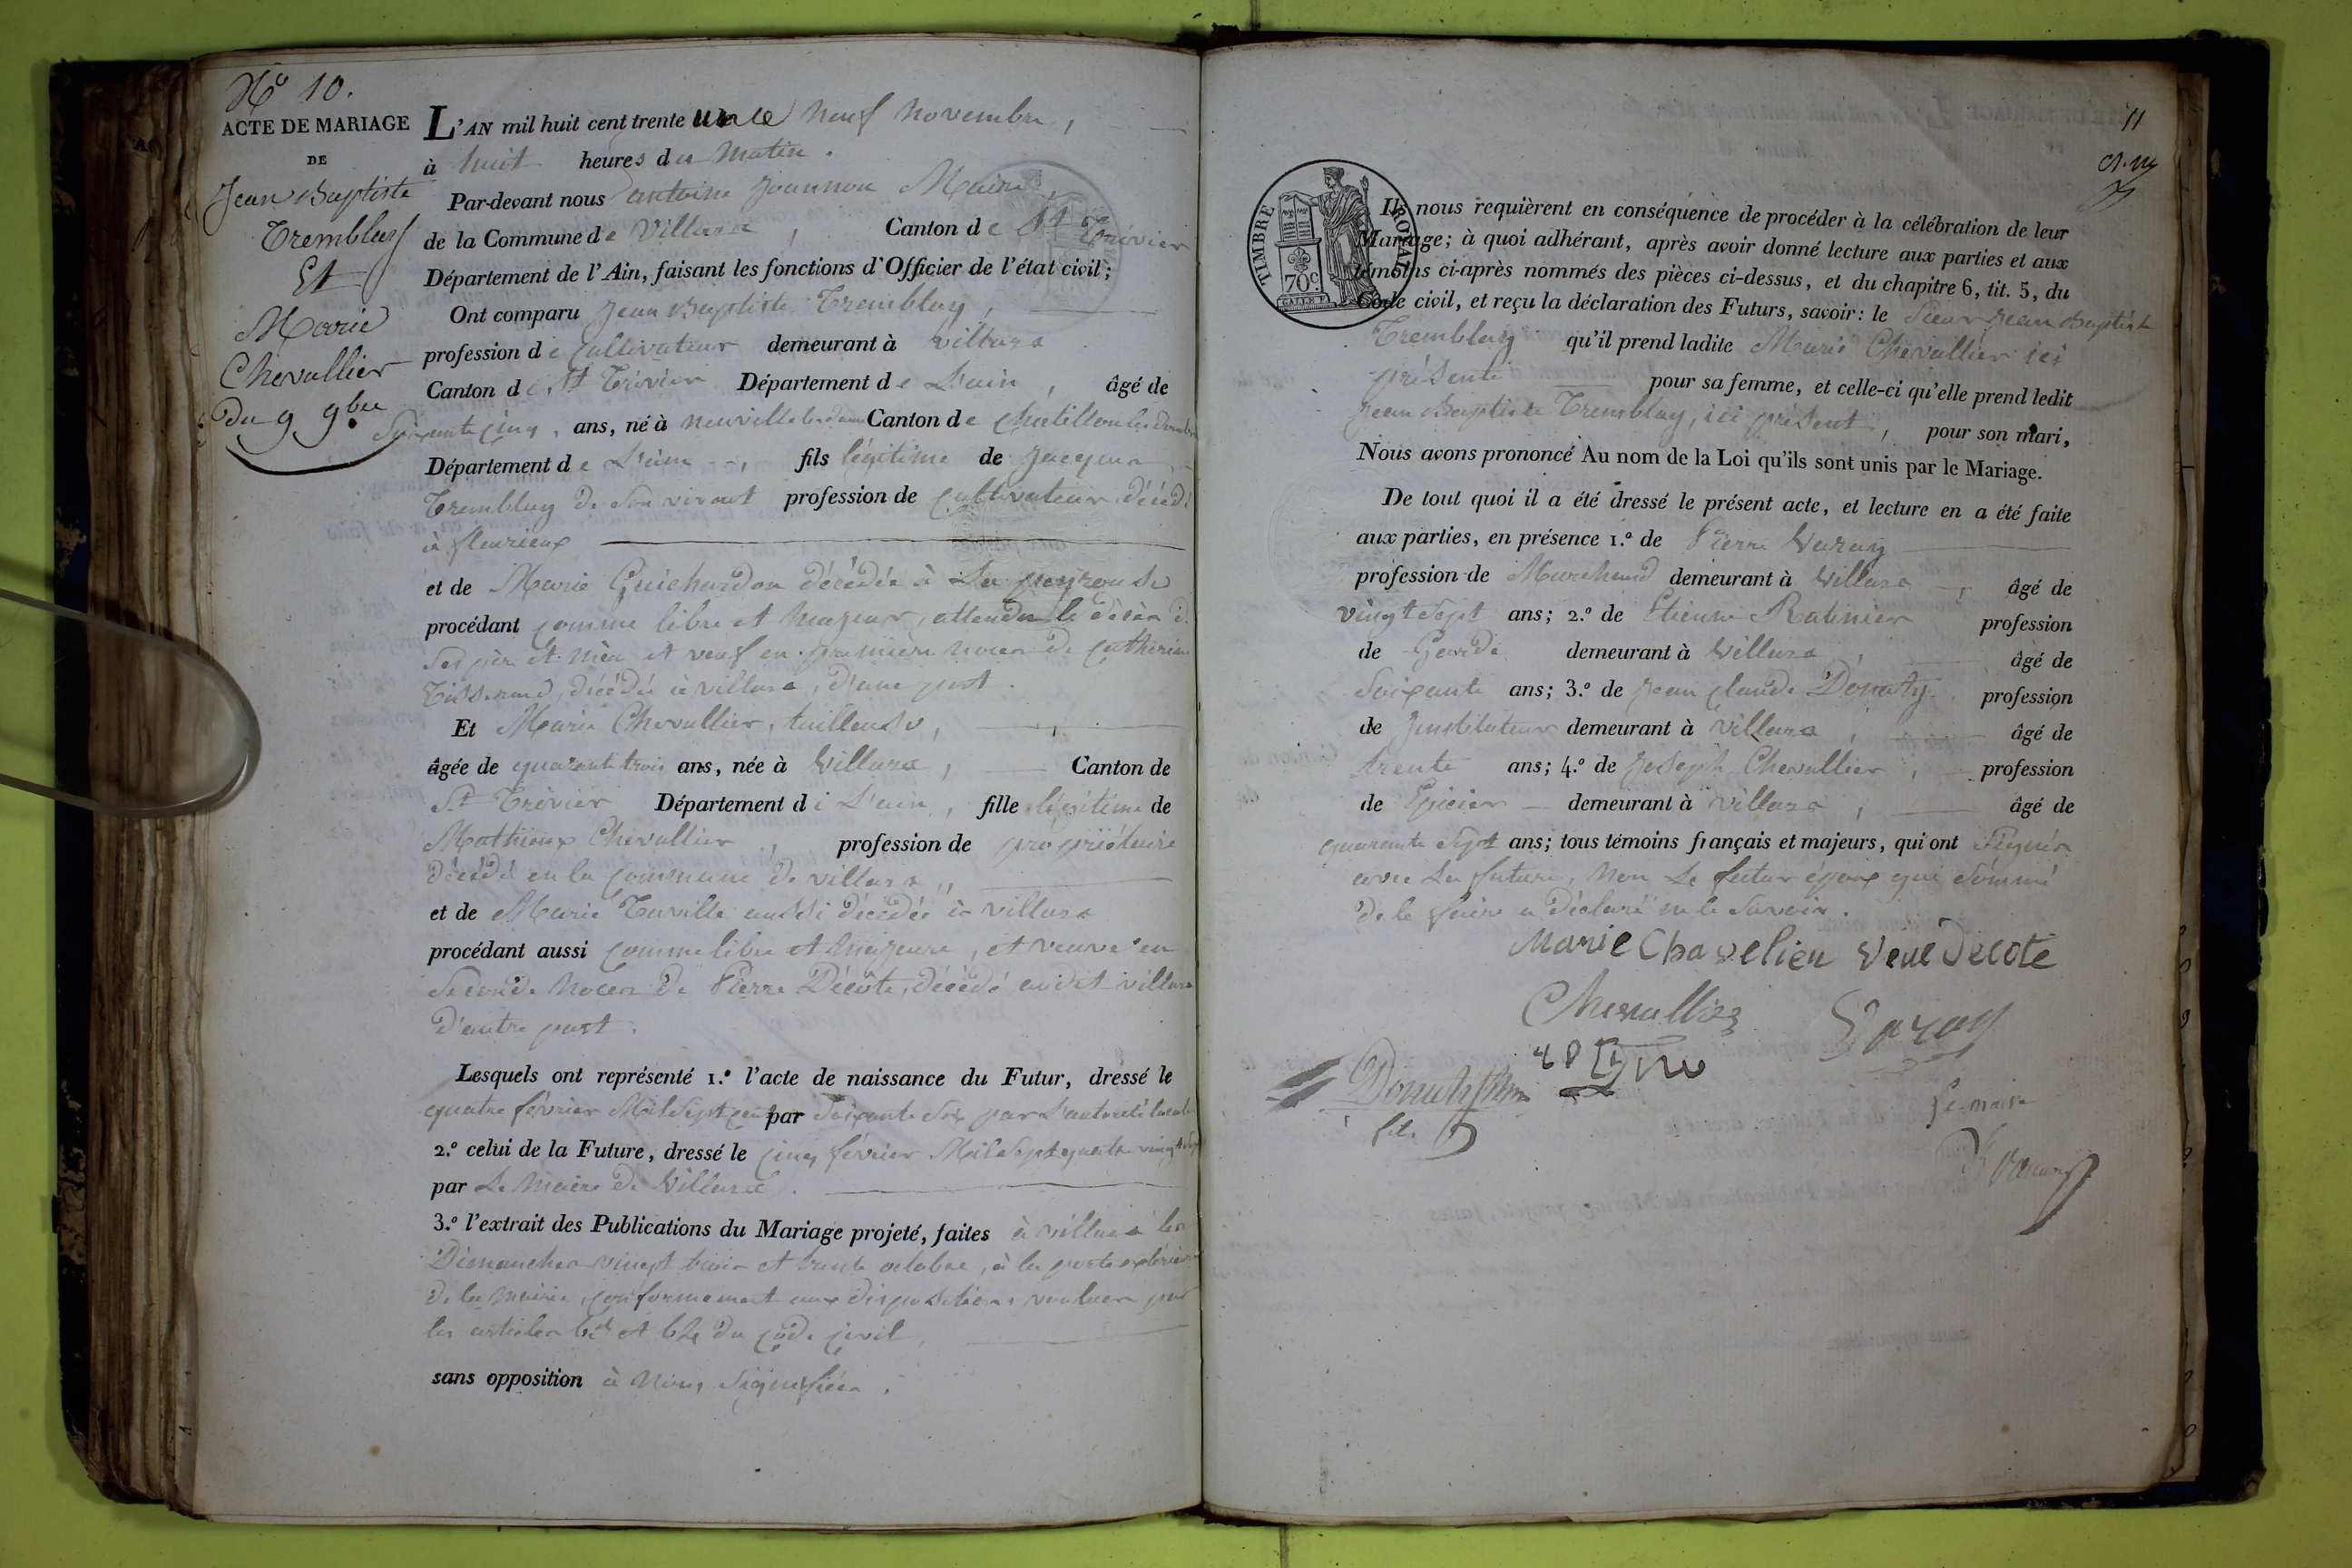 N° 10.
ACTE DE MARIAGE
DE
Jean Baptiste
Tremblay
Et
Marie
Chevallier
du 9 9bre
L'AN mil huit cent trente un le neuf novembre,
à huit heures du matin.
Par-devant nous antoine Joannon Maire
de la Commune de Villars, Canton de St Trivier
Département de l'Ain, faisant les fonctions d'Officier de l'état civil;
Ont comparu Jean Baptiste Tremblay,
profession de Cultivateur demeurant à villars
Canton de St Trivier Département de L'ain, âgé de
Soixante cinq, ans, né à neuville les dames Canton de Chatillon les Dombes
Département de L'ain, fils légitime de Jacques
Tremblay de son vivant profession de cultivateur décédé
à fleurieux
et de Marie Guichardon décédée à La peyrouse
procédant comme libre et majeur, attendu le décès de
Ses père et mère et veuf en premières noces de Catherine
Tisserand, décédée à villars, d'une part.
Et Marie Chevallier, tailleuse,
âgée de quarante trois ans, née à Villars, Canton de
St Trévier Département de L'ain, fille légitime de
Mathieux Chevallier, profession de propriétaire
décédé en la commune de villars,
et de Marie Taville aussi décédée à villars
procédant aussi comme libre et majeure, et veuve en
Seconde noces de Pierre Décote, décédé audit villars
d'autre part.
Lesquels ont représenté 1.° l'acte de naissance du Futur, dressé le
quatre février Mil Sept cent par Soixante Six par L'autorité locale
2.° celui de la Future, dressé le cinq février Mil Sept quatre vingt
par Le Maire de Villars.
3.° l'extrait des Publications du Mariage projeté, faites à villars les
Dimanches vingt trois et trente octobre, à la porte extérieure
de la mairie, conformément aux dispositions voulues par
les articles 63 et 64 du code civil,
sans opposition à nous Signifiée.
11
TIMBRE ROYAL
70c.
Ils nous requièrent en conséquence de procéder à la célébration de leur
Mariage; à quoi adhérant, après avoir donné lecture aux parties et aux
témoins ci-après nommés des pièces ci-dessus, et du chapitre 6, tit. 5, du
Code civil, et reçu la déclaration des Futurs, savoir: le Sieur Jean Baptiste
Tremblay qu'il prend ladite Marie Chevallier ici
présente pour sa femme, et celle-ci qu'elle prend ledit
Jean Baptiste Tremblay, ici présent, pour son mari,
Nous avons prononcé Au nom de la Loi qu'ils sont unis par le Mariage.
De tout quoi il a été dressé le présent acte, et lecture en a été faite
aux parties, en présence 1.° de Pierre Varay
profession de Marchand demeurant à Villars, âgé de
vingt Sept ans; 2.° de Etienne Ratinier profession
de Garde demeurant à Villars, âgé de
Soixante ans; 3.° de Jean Claude Donaty profession
de Instituteur demeurant à villars, âgé de
trente ans; 4.° de Joseph Chevallier, profession
de Epicier demeurant à villars, âgé de
quarante Sept ans; tous témoins français et majeurs, qui ont Signés
avec La future, non Le futur époux qui Sommé
de le faire a déclaré ne le Savoir.
Marie Chavelieu veuve Decote
Chevallier
Varay
fils
Le maire
Joannon